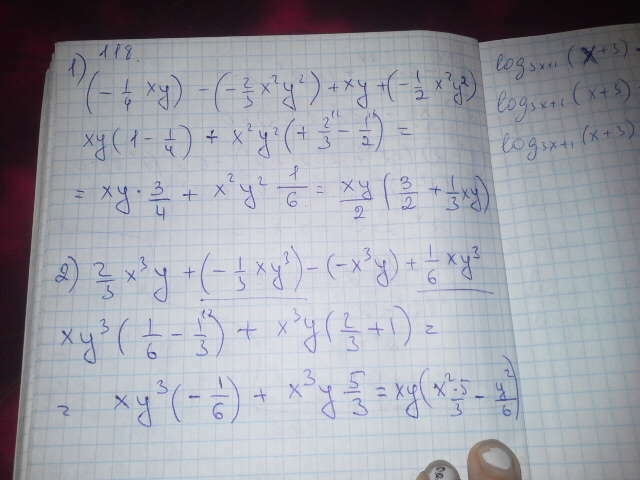 118.
1) (-1/4 xy) - (-2/3 x²y²) + xy + (-1/2 x²y²)
xy(1 - 1/4) + x²y²(+ 2/3 - 1/2) =
= xy · 3/4 + x²y² 1/6 = xy/2 (3/2 + 1/3 xy)
2) 2/3 x³y + (-1/3 xy³) - (-x³y) + 1/6 xy³
xy³(1/6 - 1/3) + x³y(2/3 + 1) =
= xy³(-1/6) + x³y 5/3 = xy(x²·5/3 - y²/6)
log₃ₓ₊₁(x+3)
log₃ₓ₊₁(x+3)
log₃ₓ₊₁(x+3)